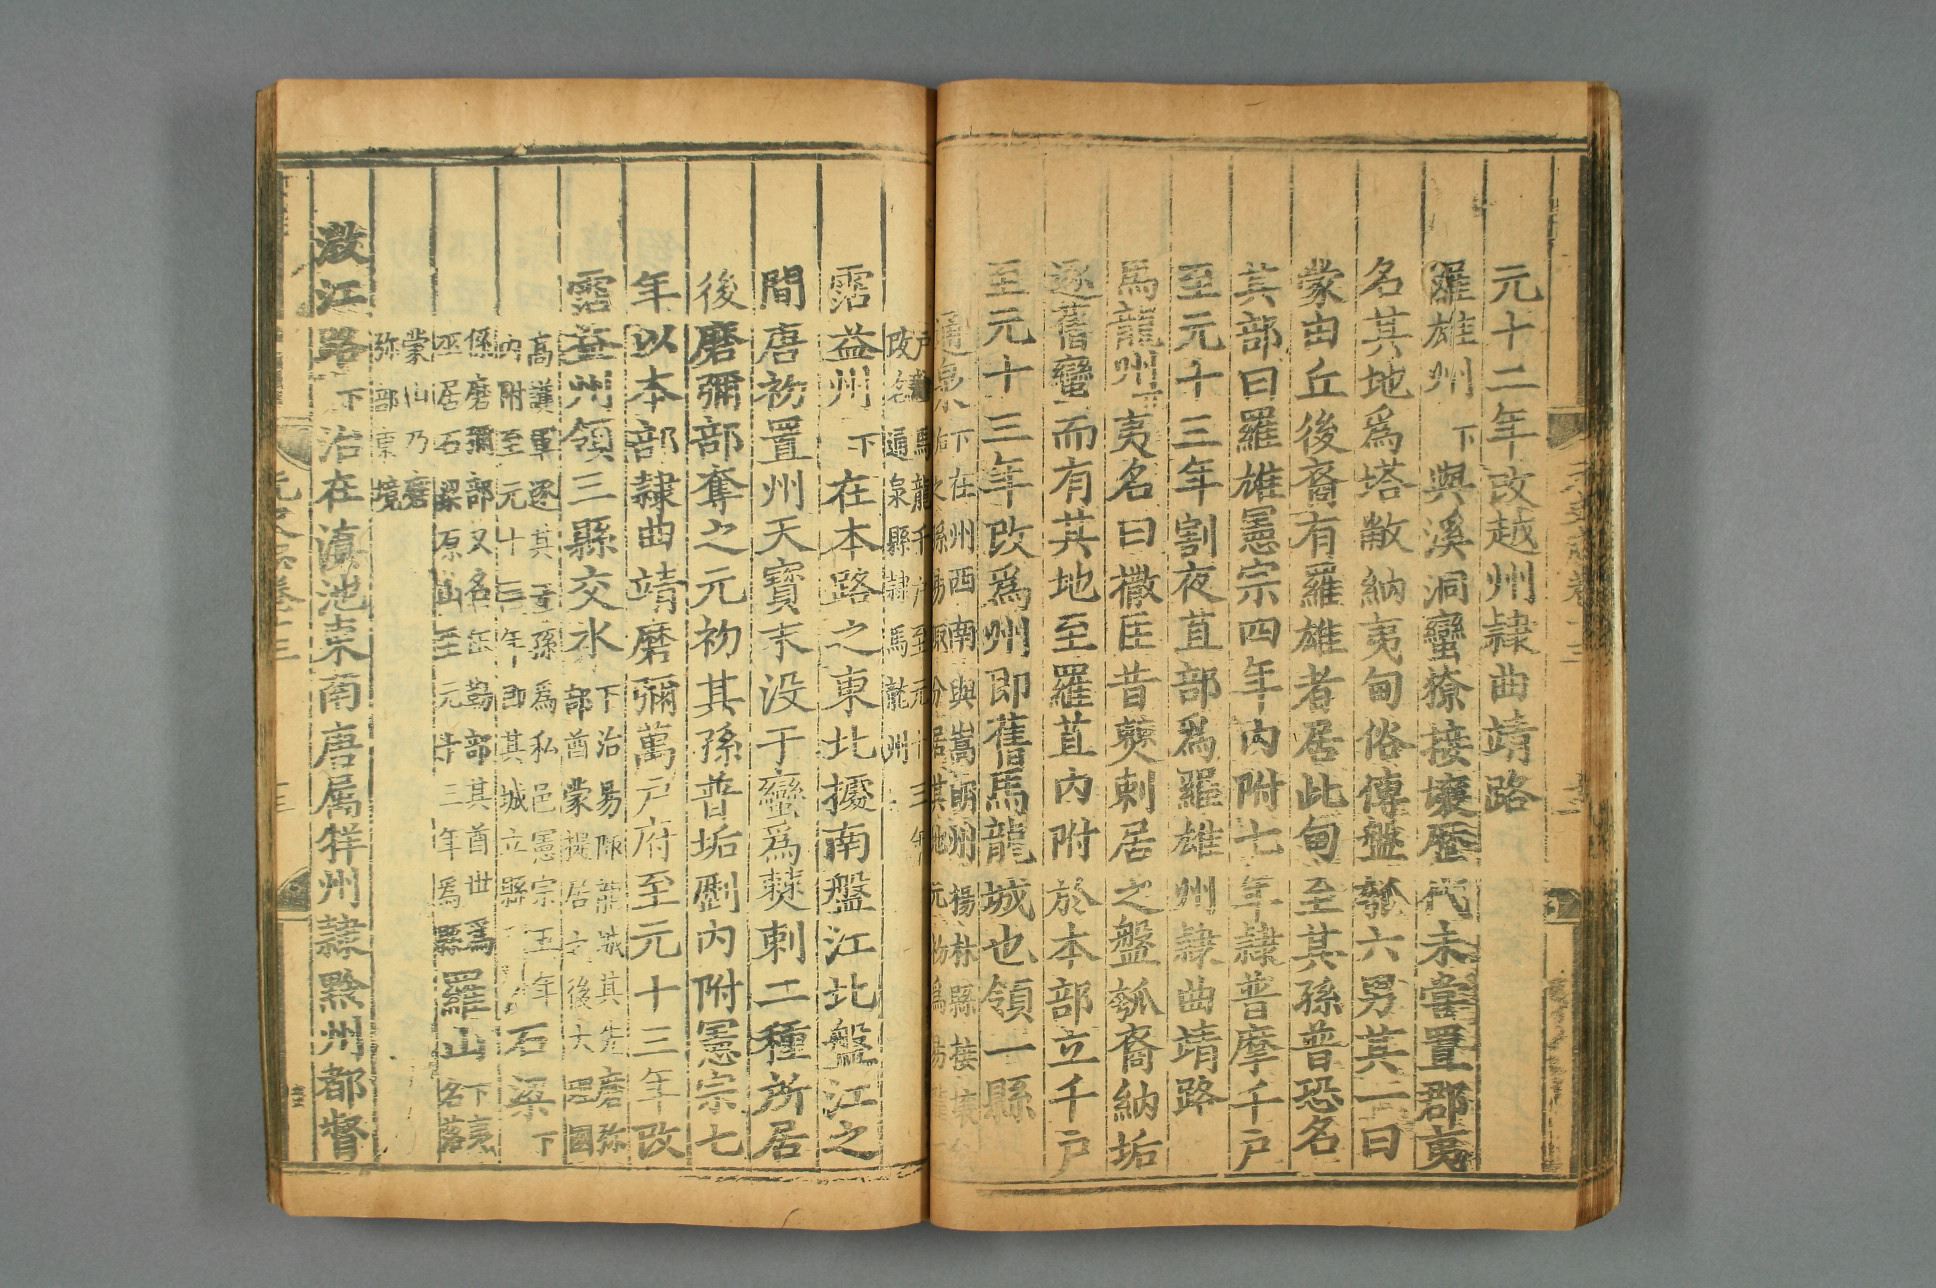 元十二年改越州隷曲靖路
羅雄州下與溪洞蠻獠接壤歷代未嘗置郡夷
名其地爲塔敝納夷甸俗傳盤瓠六男其一曰
蒙甴丘後裔有羅雄者居此甸至其孫普恐名
其部曰羅雄憲宗四年内附七年隷普摩千戶
至元十三年割夜苴部爲羅雄州隷曲靖路
馬龍州下夷名曰撒匡昔僰剌居之盤瓠裔納垢
逐舊蠻而有其地至羅苴内附於本部立千戶
至元十三年改爲州即舊馬龍城也領一縣
通泉下在州西南與嵩明州楊林縣接壤
之孫易陬分居其地元初爲易龍
戶馬龍千戶至元十三年
改名通泉縣隷馬龍州
霑益州下在本路之東北據南盤江北盤江之
間唐初置州天寶末沒于蠻爲僰剌二種所居
後磨彌部奪之元初其孫普垢㓮内附憲宗七
年以本部隷曲靖磨彌萬戶府至元十三年改
霑益州領三縣交水下治易陬龍城其先磨弥
部酋蒙提居之後大理國
高護軍逐其子孫爲私邑憲宗五年
内附至元十三年即其城立縣石梁下
係磨彌部又名伍勒部其酋世爲
巫居石梁原山至元十三年爲縣羅山下夷
名落
蒙山乃磨
弥部東境
澂江路下治在滇池東南唐屬牂州隷黔州都督